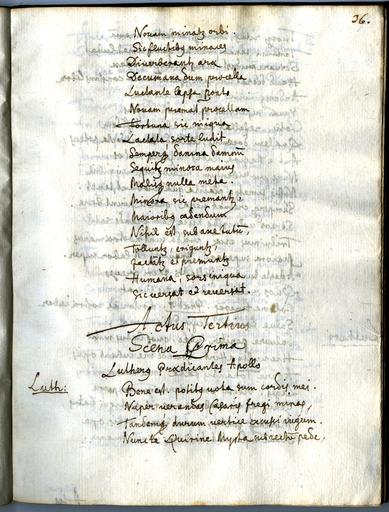 36.
Novam minatur orbi.
Sic fluctibus minores
Diverberant arx
Decumana dum procella
Luctante lapsa ponto
Novam premat procellam
Fortuna sic iniqua
Lactata sorte ludit
Semperque damna damnum
Sequitur minora maius
Malis nulla meta.
Minora sic premantur,
Maioribus cadendum
Nihil est sub axe tutum,
Tolluntur, eriguntur,
Jactis et premuntur
Humana, sors iniqua
Sic versat et reversat.
Actus Tertius
Scena Prima
Lutherus Praedicantes Apollo
Luth: Bene est. potitus vota sum cordis mei.
Nuper verendas Caesaris fregi minas,
Tandemque durum vertice excussi iugum.
Nunc te Quirine Mysta subrecto pede,